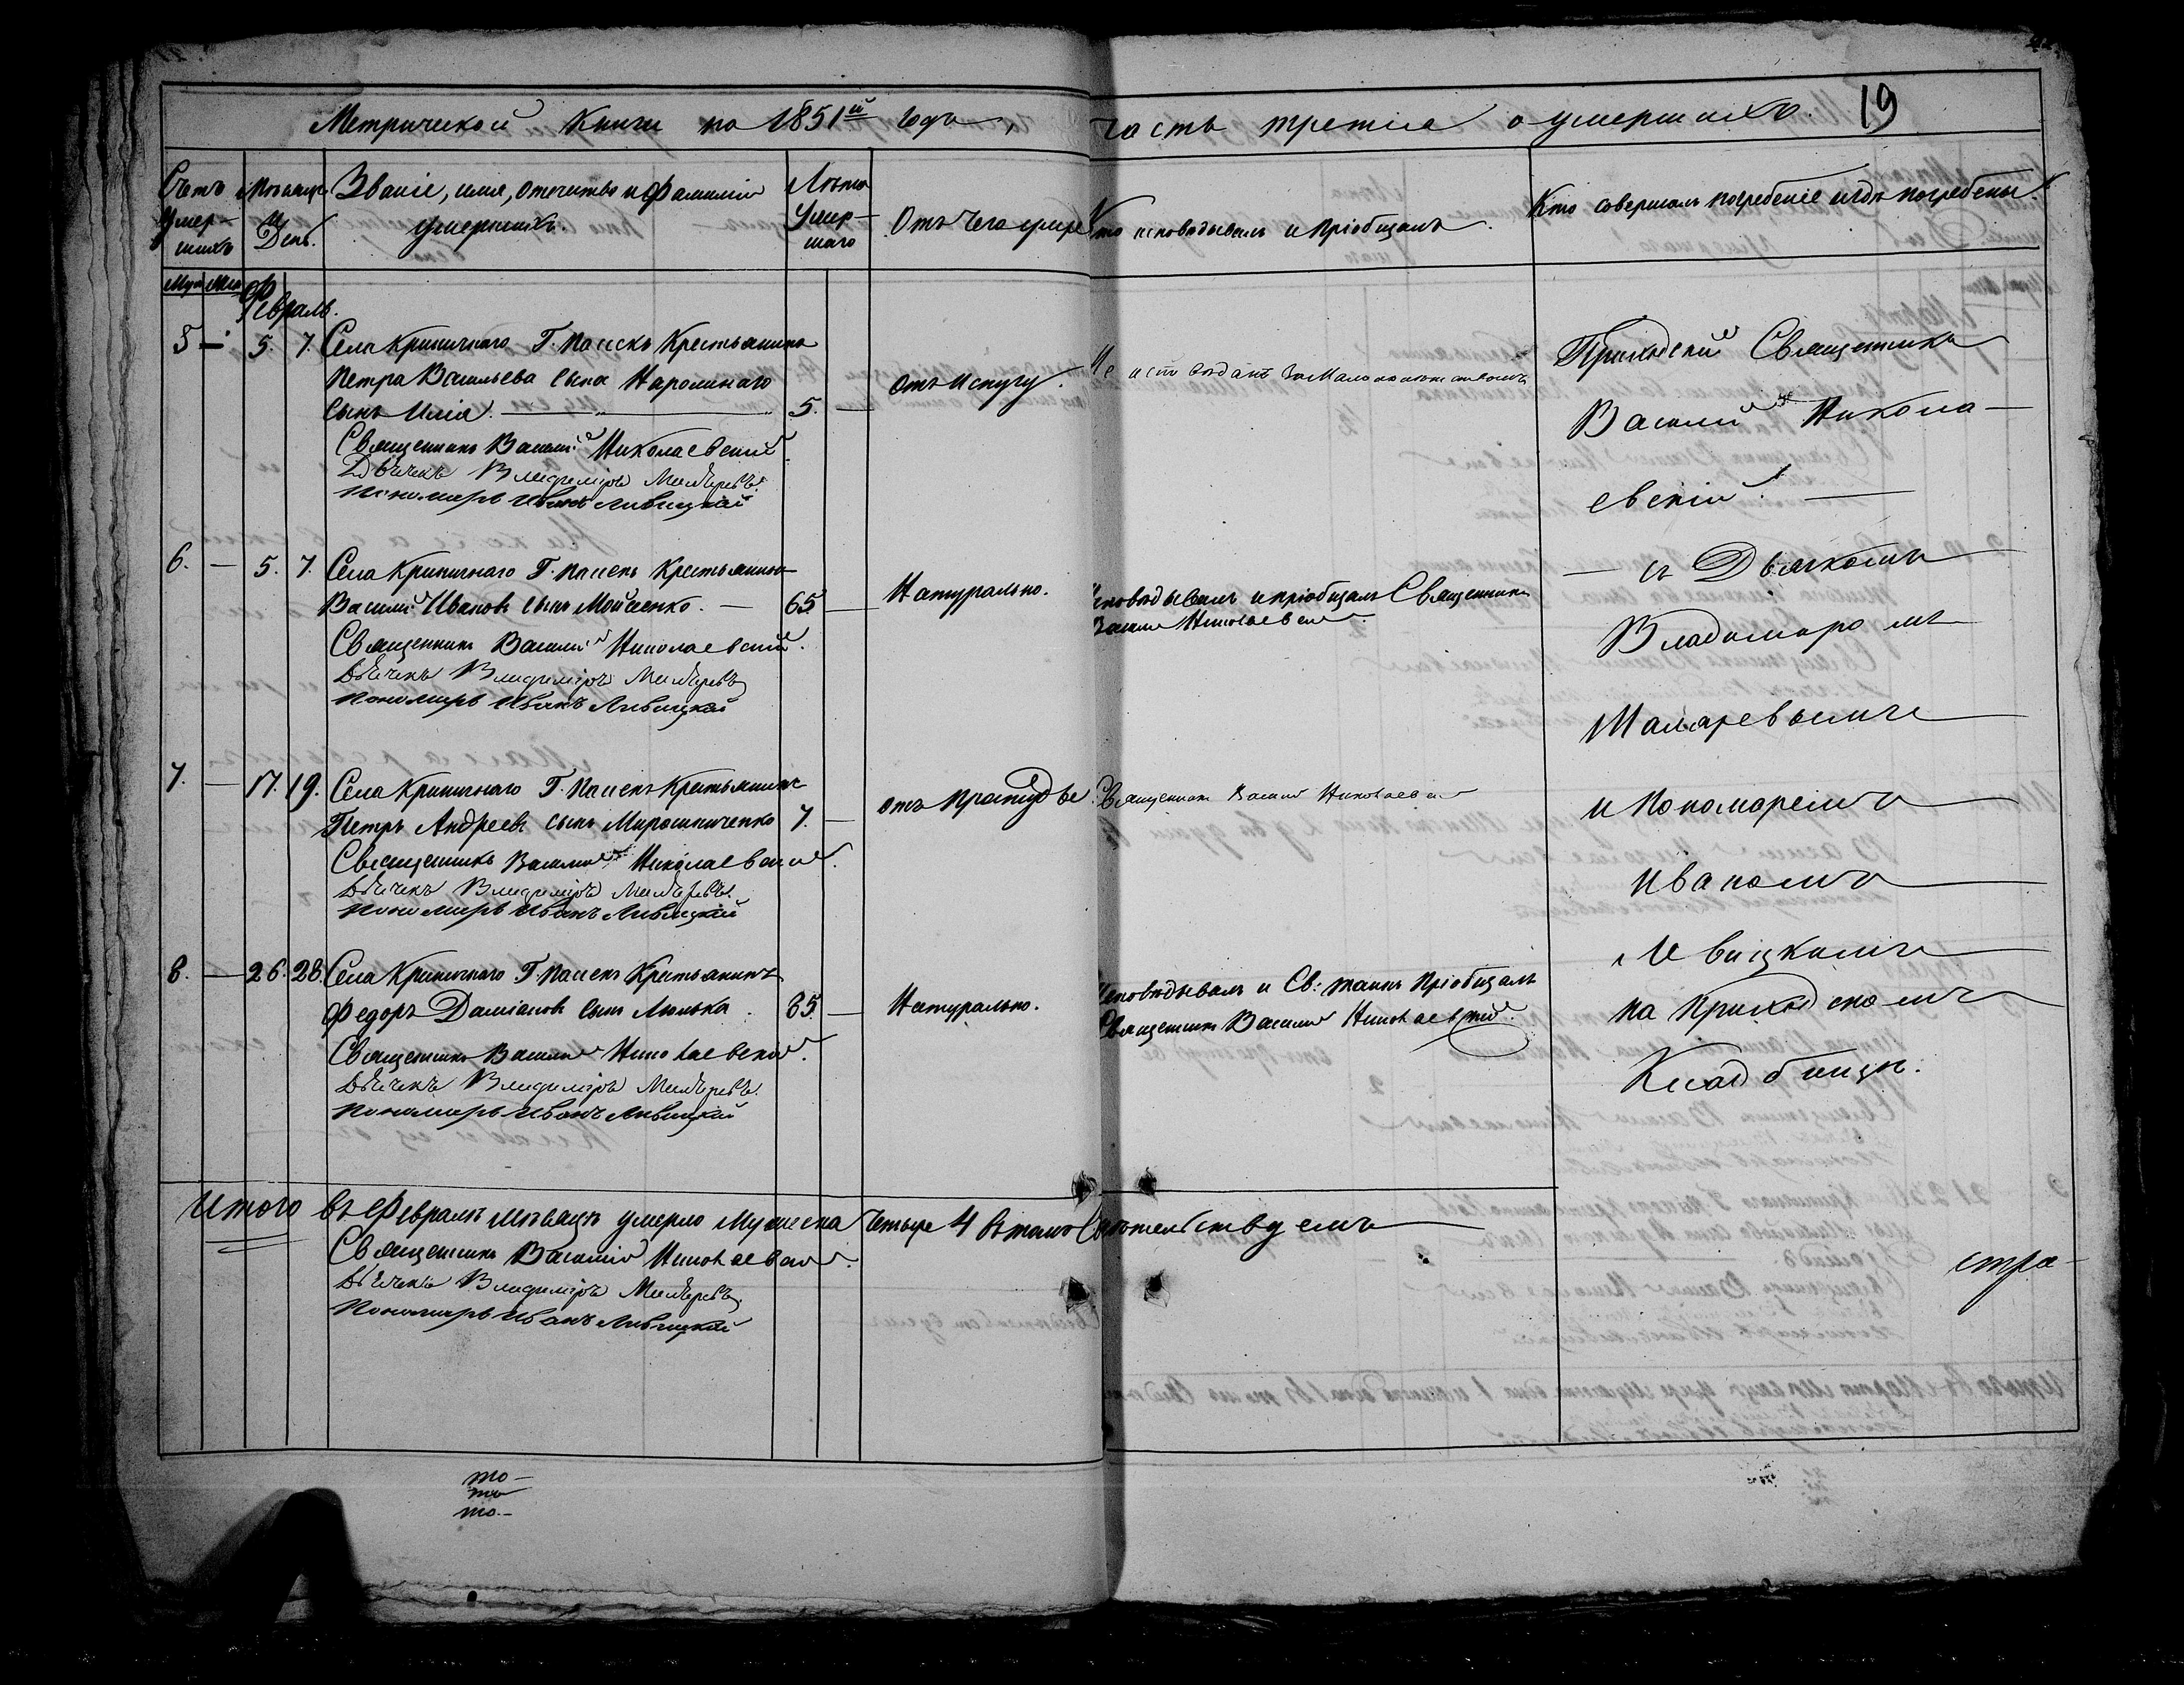 19
Метрической Книги на 1851й Года, часть третія о умершихъ.
Счетъ умер-шихъ
Мѣсяцъ и День.
Званіе, имя, отечество и фамилія умершихъ.
Лѣта Умер-шаго
Отъ чего умеръ
Кто исповѣдывалъ и пріобщалъ.
Кто совершалъ погребеніе и гдѣ погребены.
Муж Жен
Февраль.
5 — 5. 7. Села Криничнаго Г. Крестьянина
Петра Васильева сына
сынъ Илія. 5. —
Отъ Испугу.
Не исповѣданъ
Священникъ Василій Николаевскій
Дьячекъ Владиміръ
Пономарь Иванъ Левицкій
6. — 5. 7. Села Криничнаго Г. Крестьянинъ
Василій Ивановъ сынъ Мойсеенко. — 65 —
Натурально.
Исповѣдывалъ и пріобщалъ Священникъ
Василій Николаевскій.
Священникъ Василій Николаевскій.
Дьячекъ Владиміръ
Пономарь Иванъ Левицкій
7. — 17. 19. Села Криничнаго Г. Крестьянинъ
Петръ Андреевъ сынъ Мирошниченко 7. —
отъ простуды
Священникъ Василій Николаевскій
Священникъ Василій Николаевскій.
Дьячекъ Владиміръ
Пономарь Иванъ Левицкій
8. — 26. 28. Села Криничнаго Г. Крестьянинъ
Федоръ Даміановъ сынъ —
Натурально.
Исповѣдывалъ и Св: таинъ пріобщалъ
Священникъ Василій Николаевскій.
Священникъ Василій Николаевскій.
Дьячекъ Владиміръ
Пономарь Иванъ Левицкій
Приходскій Священникъ
Василій Никола-
евскій. —
— съ Дьячкомъ
Владиміромъ
и Пономаремъ
Иваномъ
Левицкимъ
на приходскомъ
Кладбищѣ.
Итого въ Февралѣ мѣсяцѣ умерло Мужеска четыре 4 въ томъ Свидѣтельствуемъ
Священникъ Василій Николаевскій.
Дьячекъ Владиміръ
Пономарь Иванъ Левицкій
стра-
то-
то-
то.-